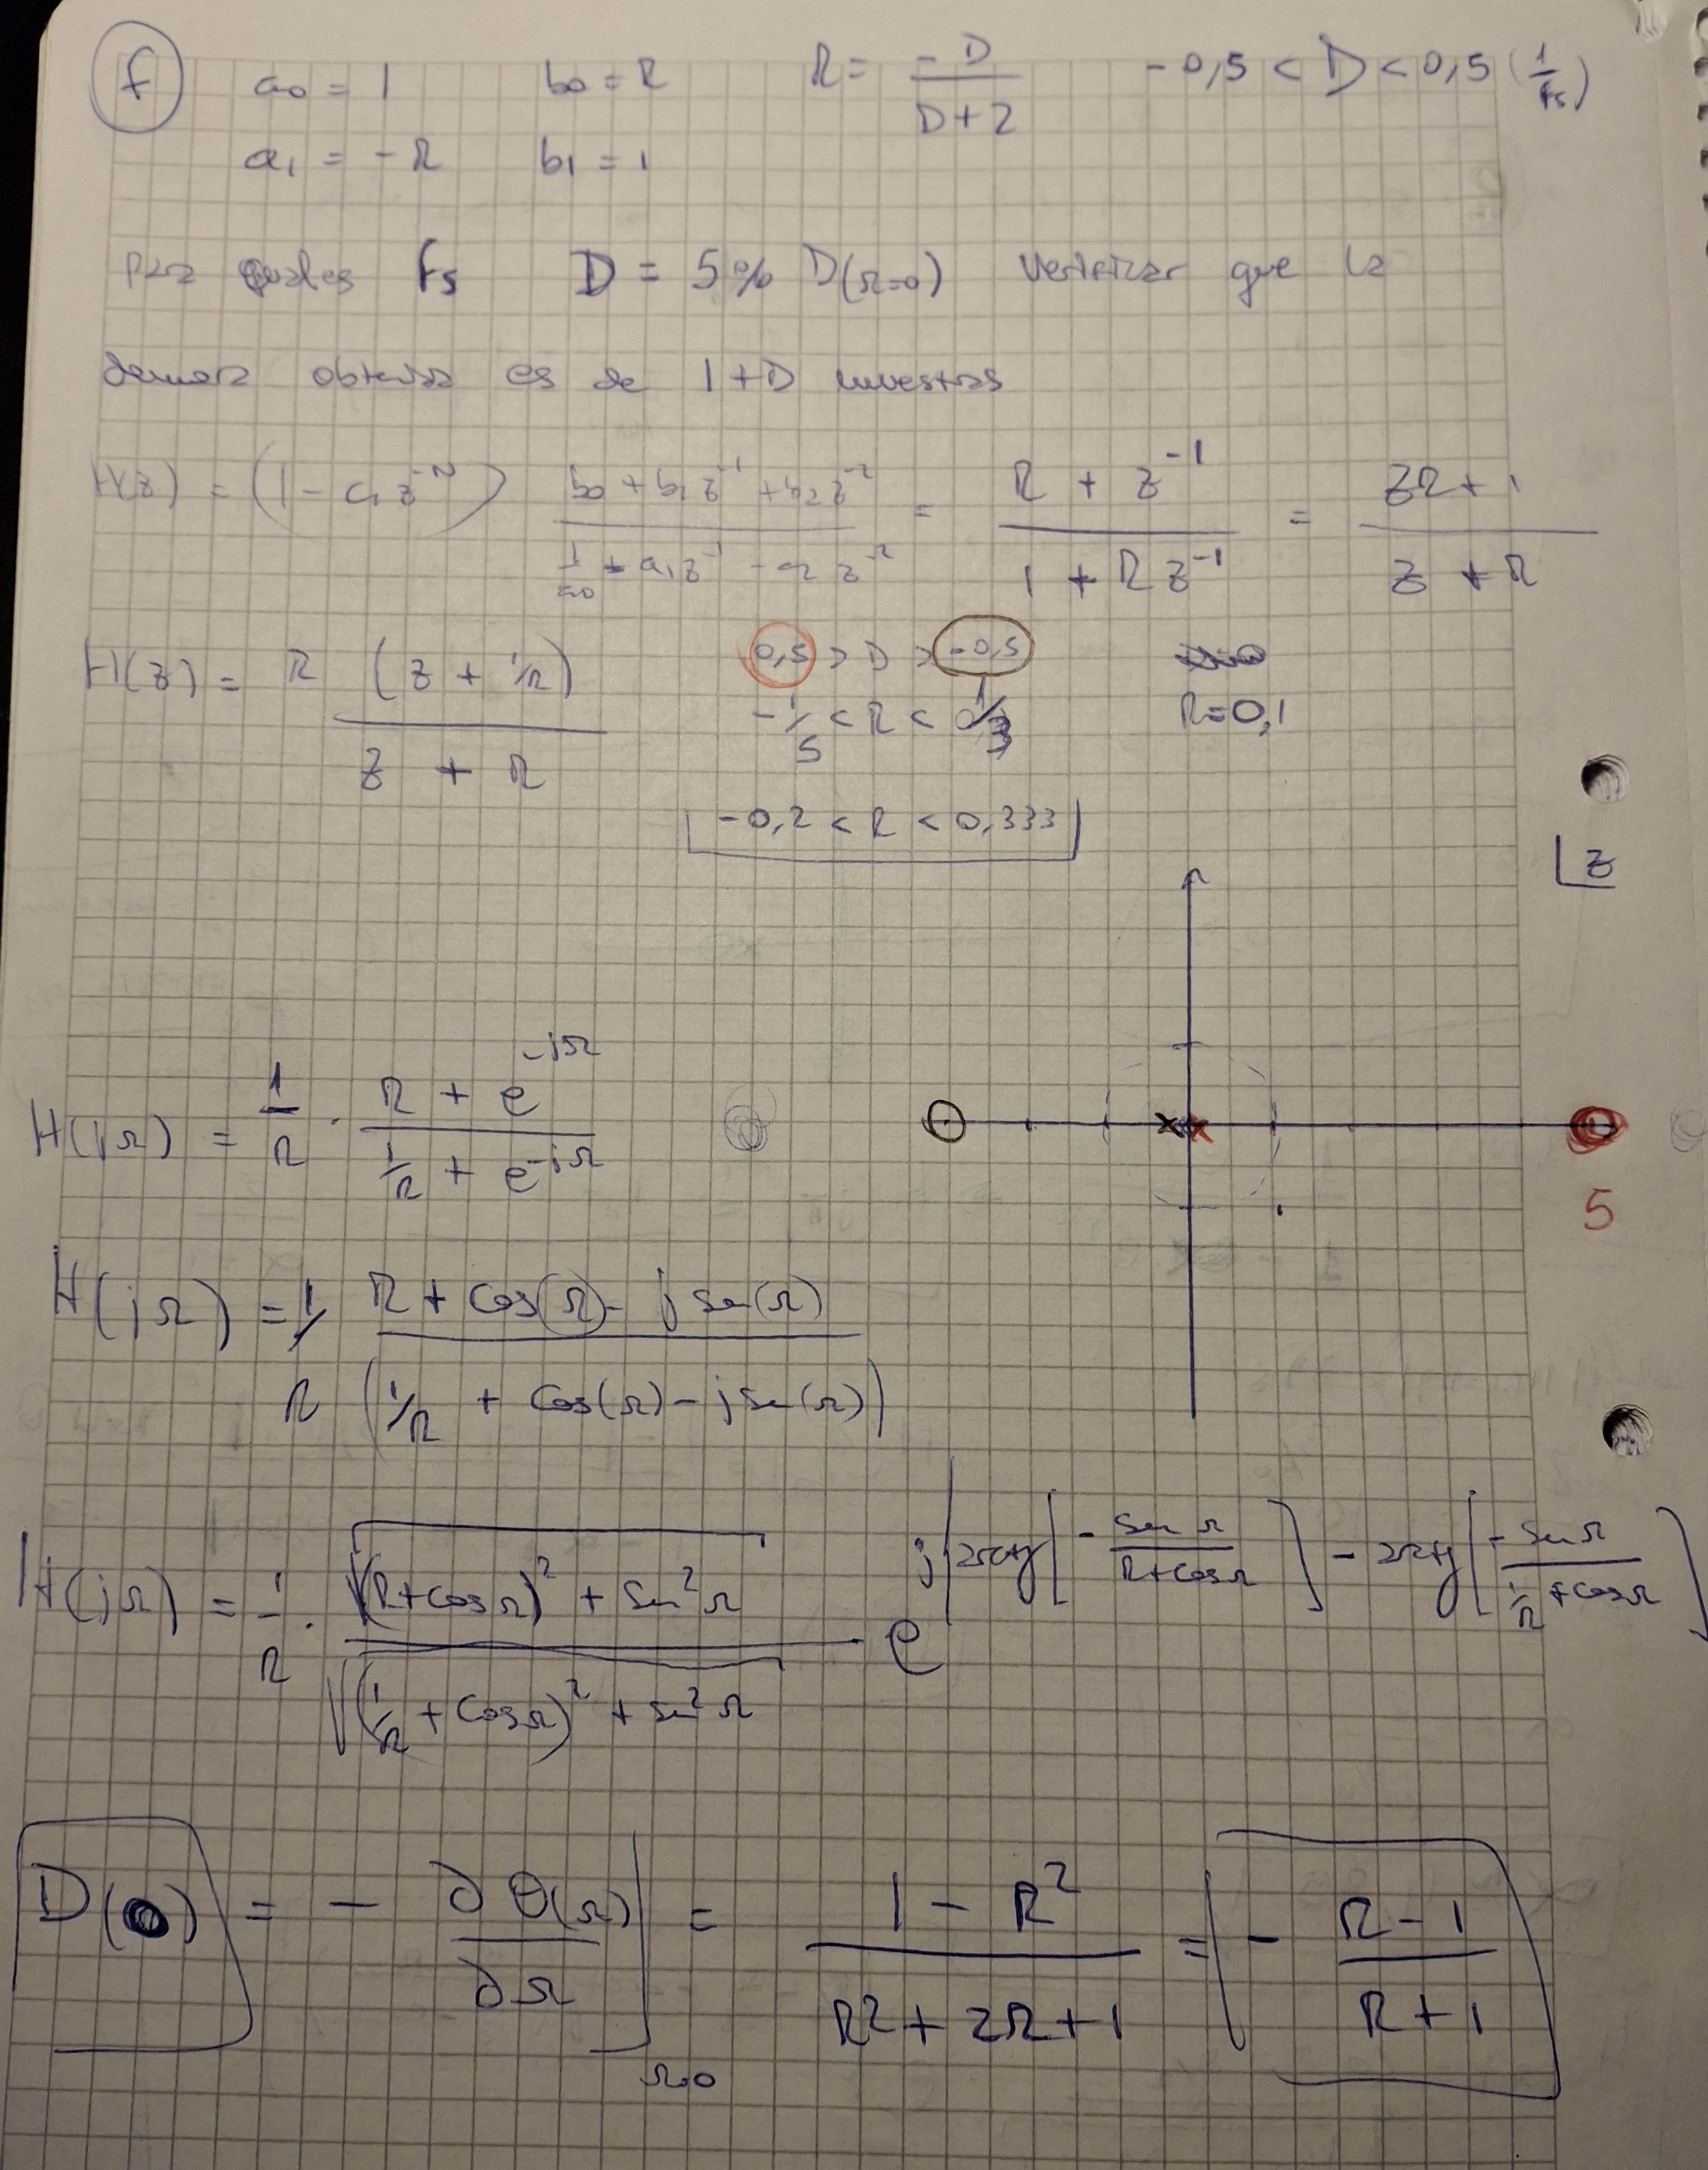 f a0 = 1 b0 = R R = -D / (D+2) -0,5 < D < 0,5 (1/fs)
a1 = -R b1 = 1
para fs D = 5% D(Ω=0) verificar que la
demora obtenida es de 1+D muestras
H(z) = (1 - c1 z^-N) (b0 + b1 z^-1 + b2 z^-2) / (1/a0 - a1 z^-1 - a2 z^-2) = (R + z^-1) / (1 + R z^-1) = (zR + 1) / (z + R)
H(z) = R (z + 1/R) / (z + R)
0,5 > D > -0,5
-1/5 < R < 1/3 R=0,1
-0,2 < R < 0,333
z
H(jΩ) = 1/R · (R + e^-jΩ) / (1/R + e^-jΩ)
5
H(jΩ) = 1/R (R + cos(Ω) - j sen(Ω)) / (1/R + cos(Ω) - j sen(Ω))
H(jΩ) = 1/R · √((R+cosΩ)² + sen²Ω) / √((1/R + cosΩ)² + sen²Ω) e^j[arctg[-senΩ / (R+cosΩ)] - arctg[-senΩ / (1/R + cosΩ)]]
D(0) = - ∂θ(Ω)/∂Ω |Ω=0 = (1 - R²) / (R² + 2R + 1) = - (R - 1) / (R + 1)